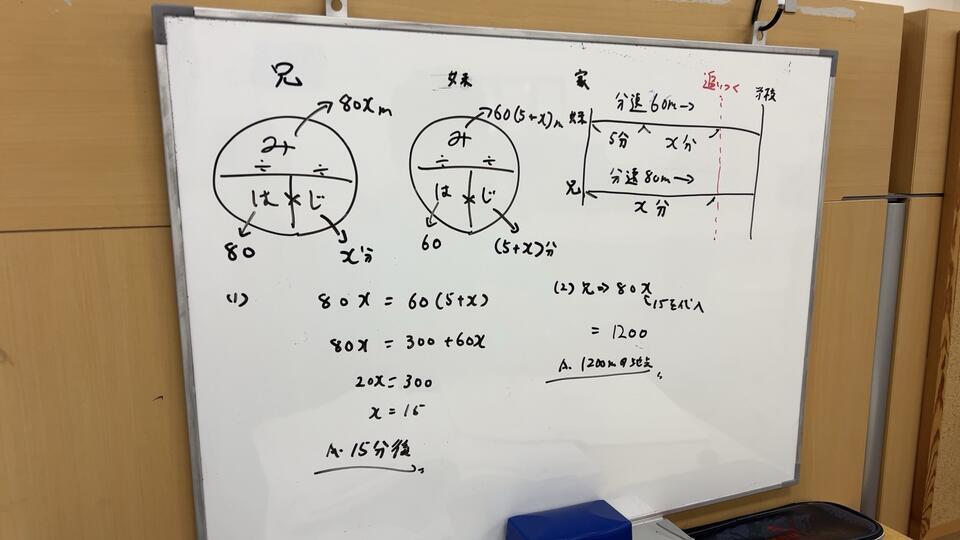 兄
80xm
み
÷ ÷
は × じ
80
x分
妹
60(5+x)m
み
÷ ÷
は × じ
60
(5+x)分
家
追いつく
学校
分速60m→
妹
5分 x分
分速80m→
兄
x分
(1)
80x = 60(5+x)
80x = 300+60x
20x=300
x=15
A. 15分後
(2) 兄⇒80x
15を代入
= 1200
A. 1200mの地点